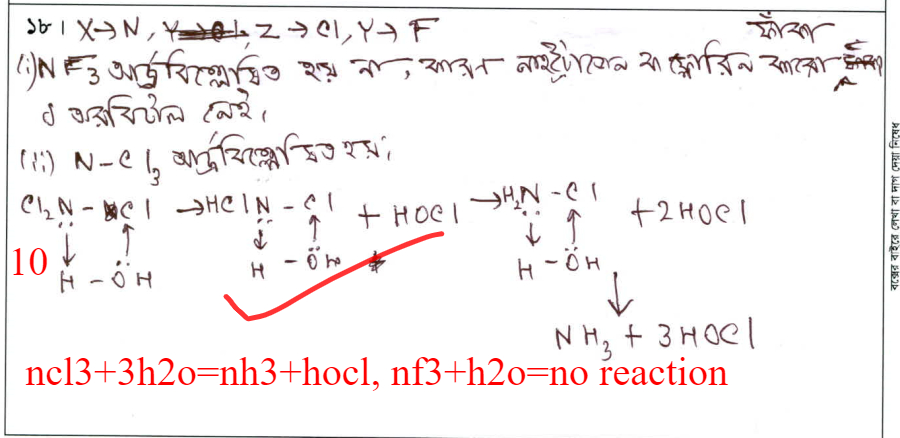 ১৮। X→N, Y→Cl, Z→Cl, Y→F
ফাঁকা
(i) NF3 আর্দ্রবিশ্লেষিত হয় না, কারণ নাইট্রোজেন বা ফ্লোরিন কারো ফাঁকা
d অরবিটাল নেই।
(ii) N-Cl3 আর্দ্রবিশ্লেষিত হয়।
Cl2N - Cl → HClN - Cl + HOCl → H2N - Cl + 2HOCl
H - ÖH H - ÖH H - ÖH
10
NH3 + 3HOCl
ncl3+3h2o=nh3+hocl, nf3+h2o=no reaction
বক্সের বাইরে লেখা বা দাগ দেয়া নিষেধ